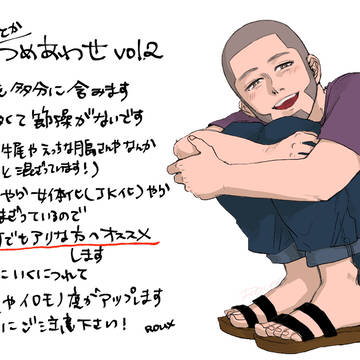 とか
つめあわせ vol.2
を多分に含みます
くて節操がないです
牛尾やえっちな月島さんやなんか
と混ざっています!)
やら女体化(JK化)やら
まざっているので
でもアリな方へオススメ
します
にいくにつれて
やイロモノ度がアップします
にご注意下さい!